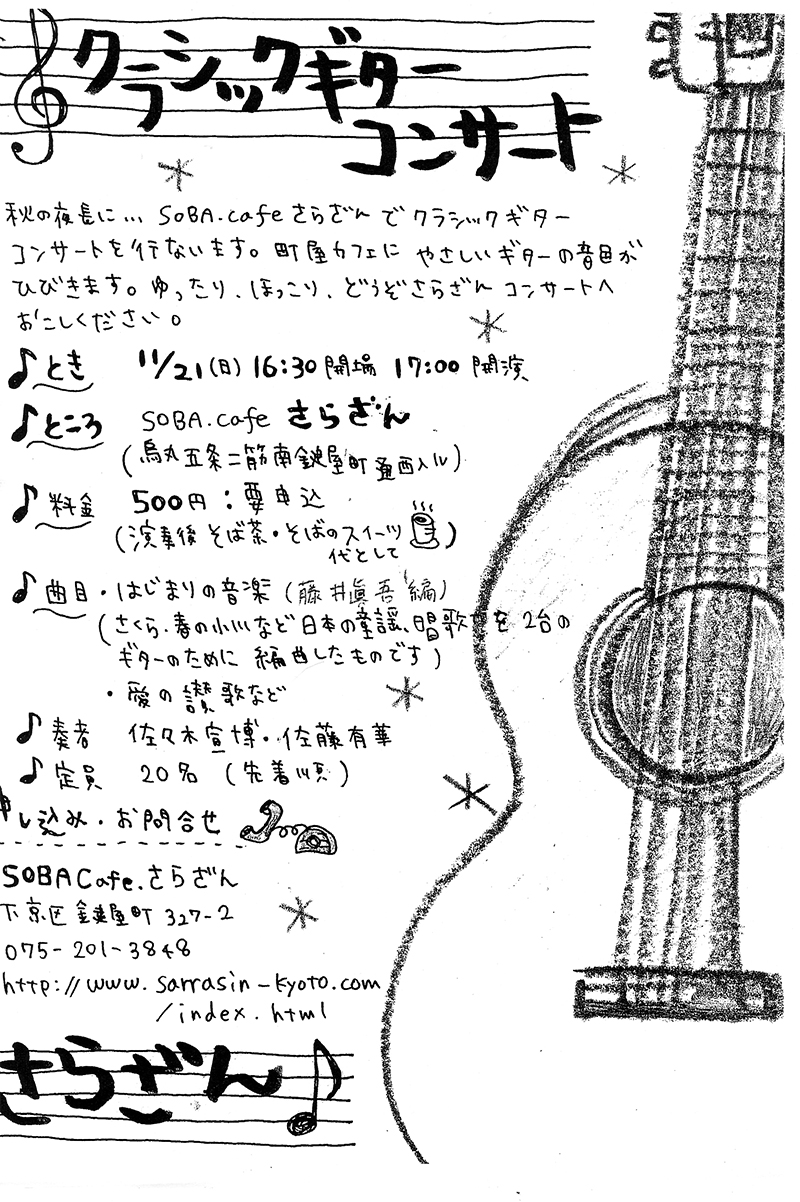 クラシックギター
コンサート
秋の夜長に... SOBA.cafe さらざん で クラシックギター
コンサートを行ないます。町屋カフェに やさしいギターの音色が
ひびきます。ゆったり、ほっこり、どうぞさらざん コンサートへ
おこしください。
とき 11/21(日) 16:30 開場 17:00 開演
ところ SOBA.cafe さらざん
(烏丸五条二筋南鍵屋町通西入ル)
料金 500円：要申込
(演奏後 そば茶・そばのスイーツ
代として)
曲目・はじまりの音楽 (藤井眞吾 編)
(さくら、春の小川など 日本の童謡、唱歌を 2台の
ギターのために 編曲したものです)
・愛の讃歌など
奏者 佐々木宣博・佐藤有華
定員 20名 (先着順)
申し込み・お問合せ
SOBA Cafe. さらざん
下京区鍵屋町 327-2
075-201-3848
http://www.sarrasin-kyoto.com
/index.html
さらざん